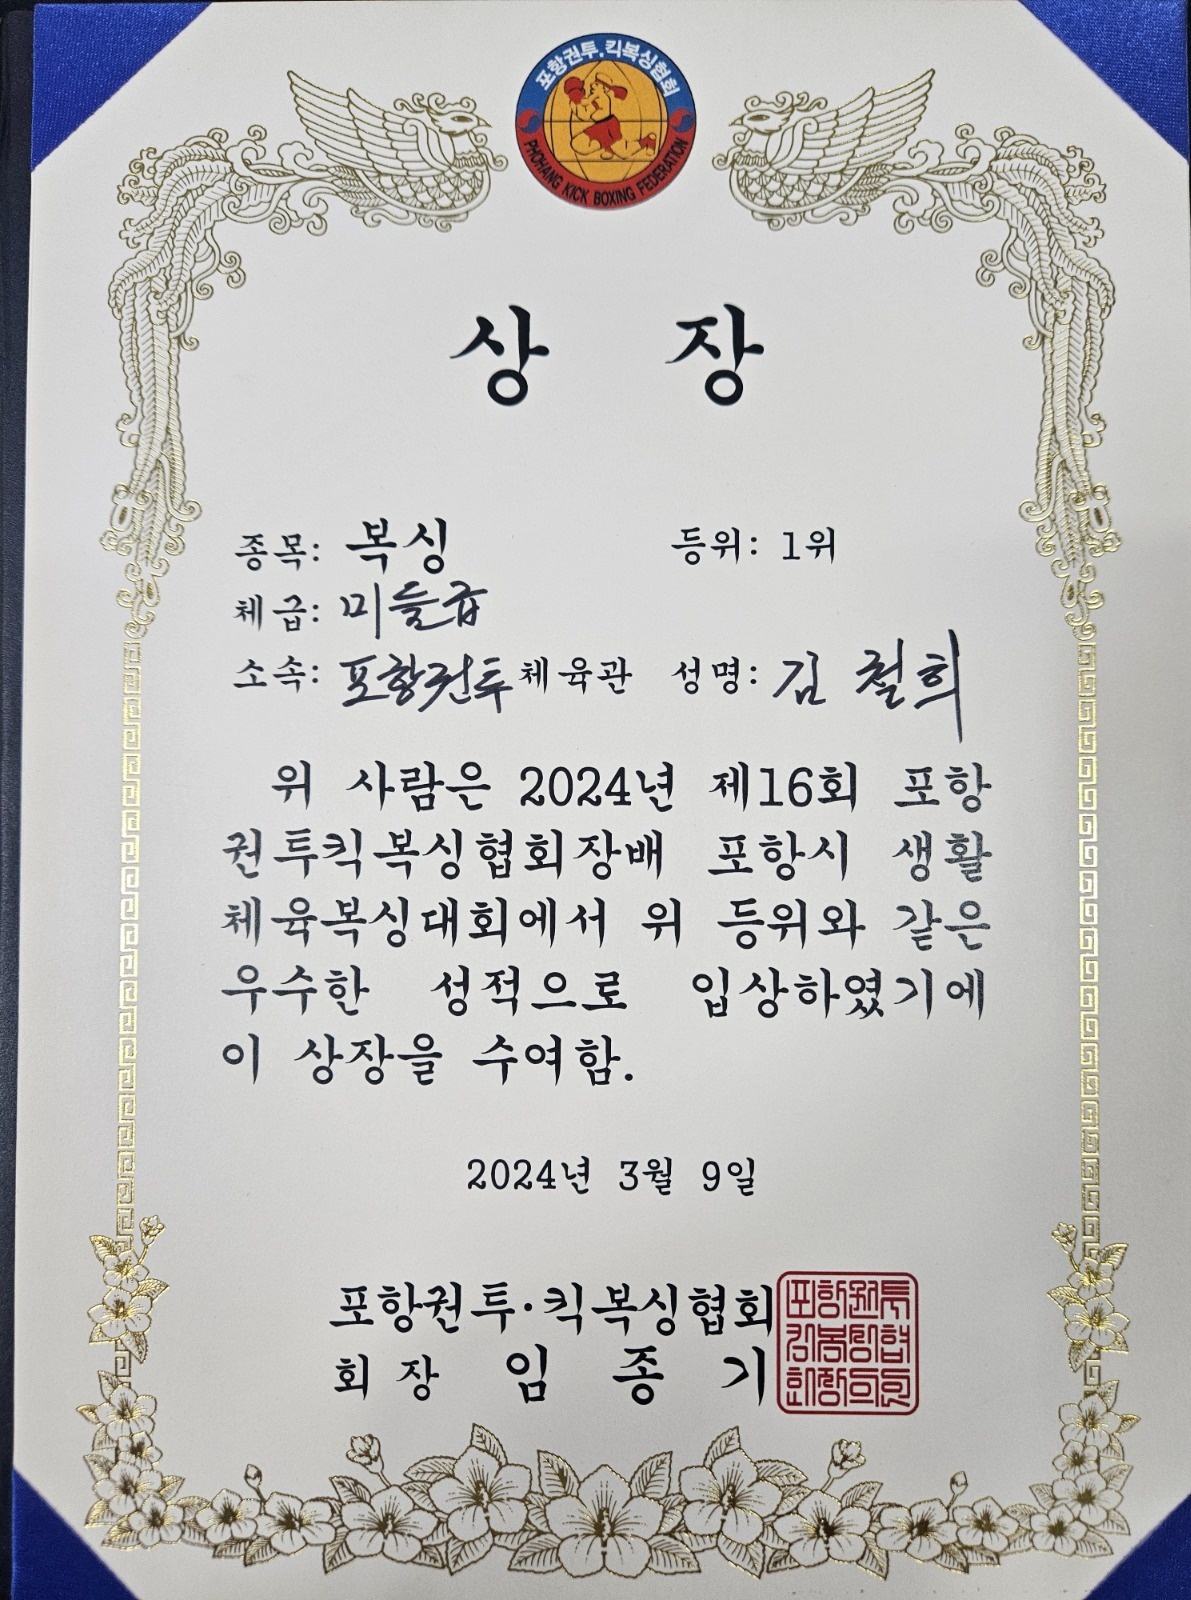 포항권투.킥복싱협회
POHANG KICK BOXING FEDERATION
상 장
종목: 복싱 등위: 1위
체급: 미들급
소속: 포항권투체육관 성명: 김철희
위 사람은 2024년 제16회 포항
권투킥복싱협회장배 포항시 생활
체육복싱대회에서 위 등위와 같은
우수한 성적으로 입상하였기에
이 상장을 수여함.
2024년 3월 9일
포항권투·킥복싱협회
회장 임종기